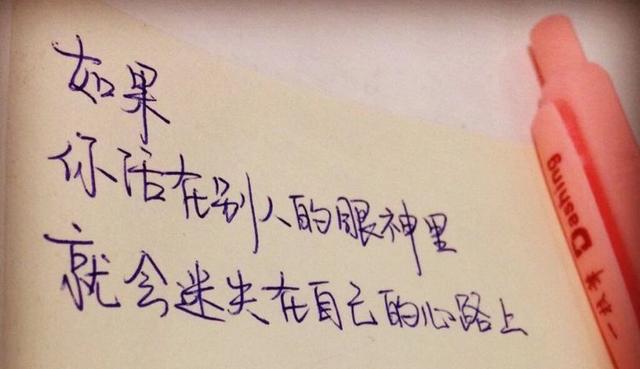 如果
你活在别人的眼神里
就会迷失在自己的心路上
一枝笔 Dashing